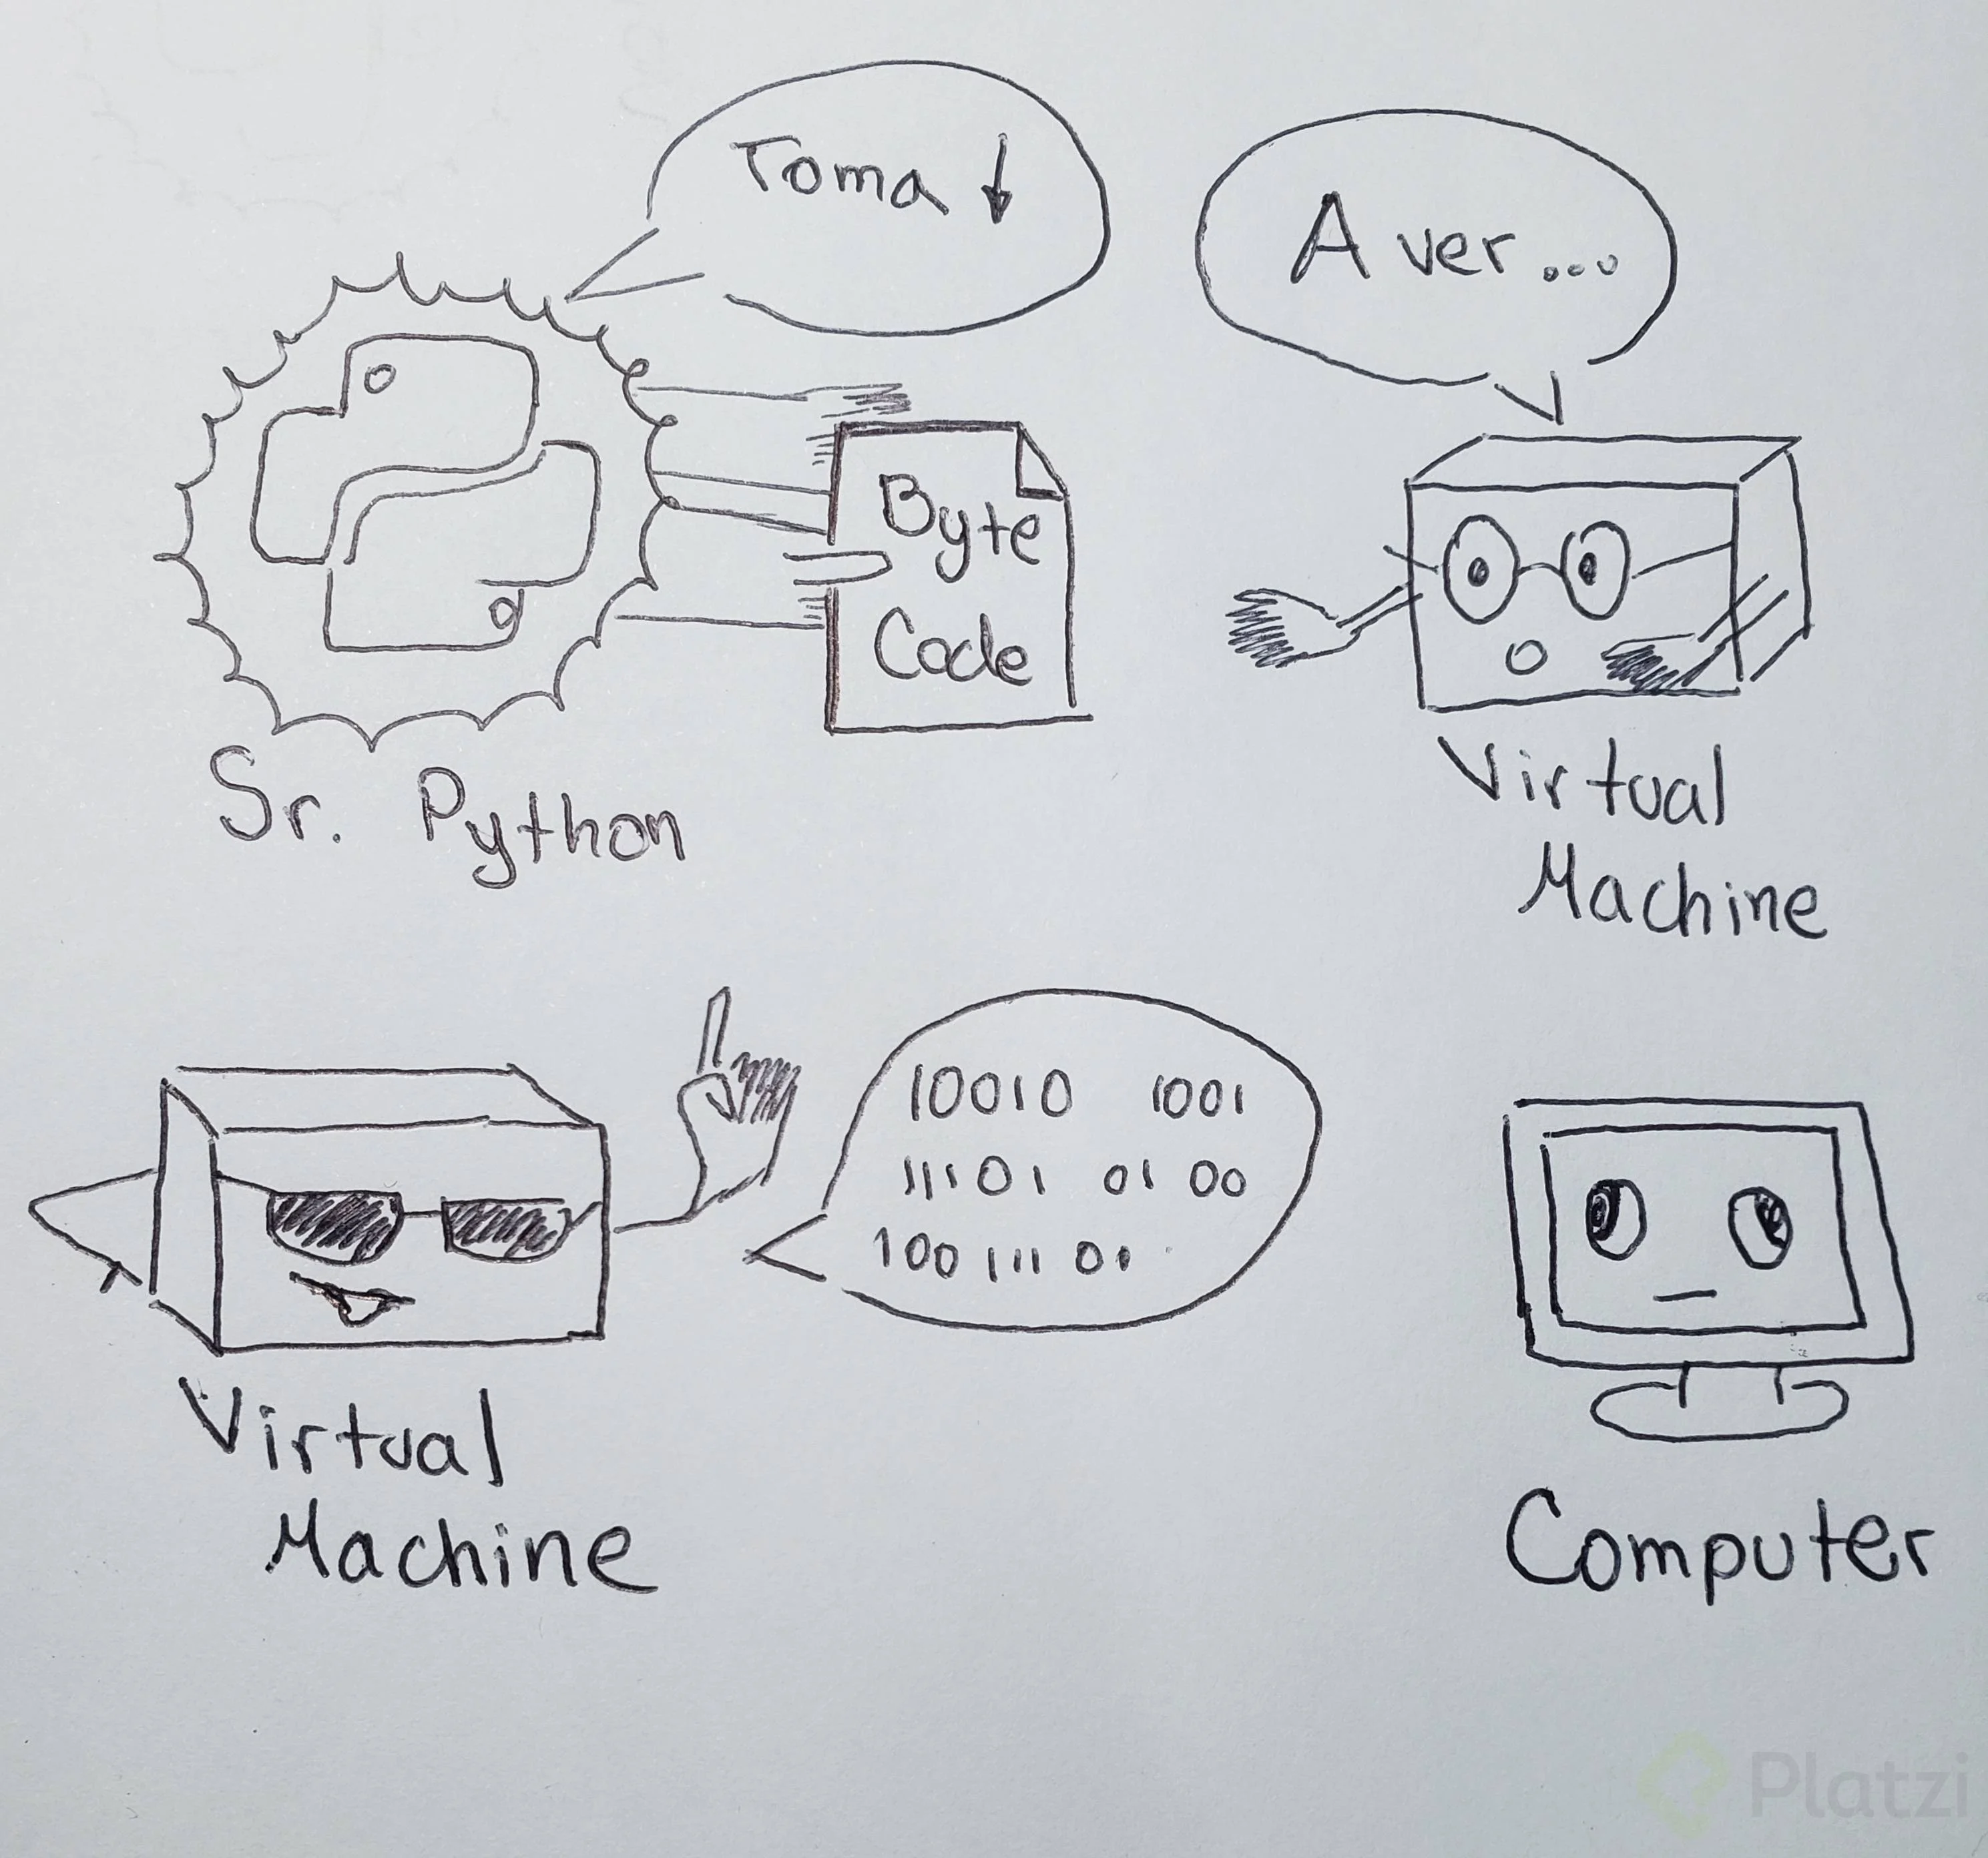 Toma ↓
A ver...
Byte
Code
Sr. Python
Virtual
Machine
10010 1001
11101 01 00
100 111 01
Virtual
Machine
Computer
Platzi